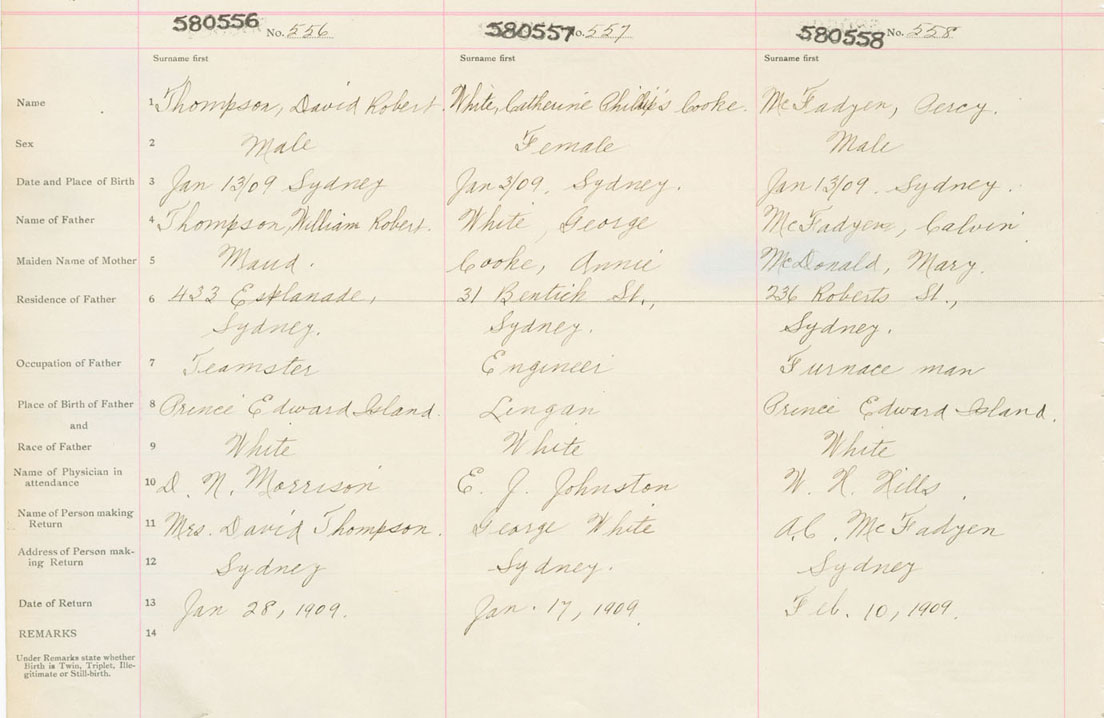 580556 No. 556 580557 No. 557 580558 No. 558
Surname first Surname first Surname first
Name 1 Thompson, David Robert. White, Catherine Phillip's Cooke. McFadyen, Percy.
Sex 2 Male Female Male
Date and Place of Birth 3 Jan 13/09 Sydney Jan 3/09. Sydney. Jan 13/09. Sydney.
Name of Father 4 Thompson, William Robert. White, George McFadyen, Calvin
Maiden Name of Mother 5 Maud. Cooke, Annie McDonald, Mary.
Residence of Father 6 433 Esplanade, 31 Bentick St., 236 Roberts St.,
Sydney. Sydney. Sydney.
Occupation of Father 7 Teamster Engineer Furnace man
Place of Birth of Father 8 Prince Edward Island. Lingan Prince Edward Island.
and
Race of Father 9 White White White
Name of Physician in
attendance 10 D. N. Morrison E. J. Johnston W. H. Hills.
Name of Person making
Return 11 Mrs. David Thompson. George White A.C. McFadyen
Address of Person mak-
ing Return 12 Sydney Sydney. Sydney
Date of Return 13 Jan 28, 1909. Jan. 17, 1909. Feb. 10, 1909.
REMARKS 14
Under Remarks state whether
Birth is Twin, Triplet, Ille-
gitimate or Still-birth.